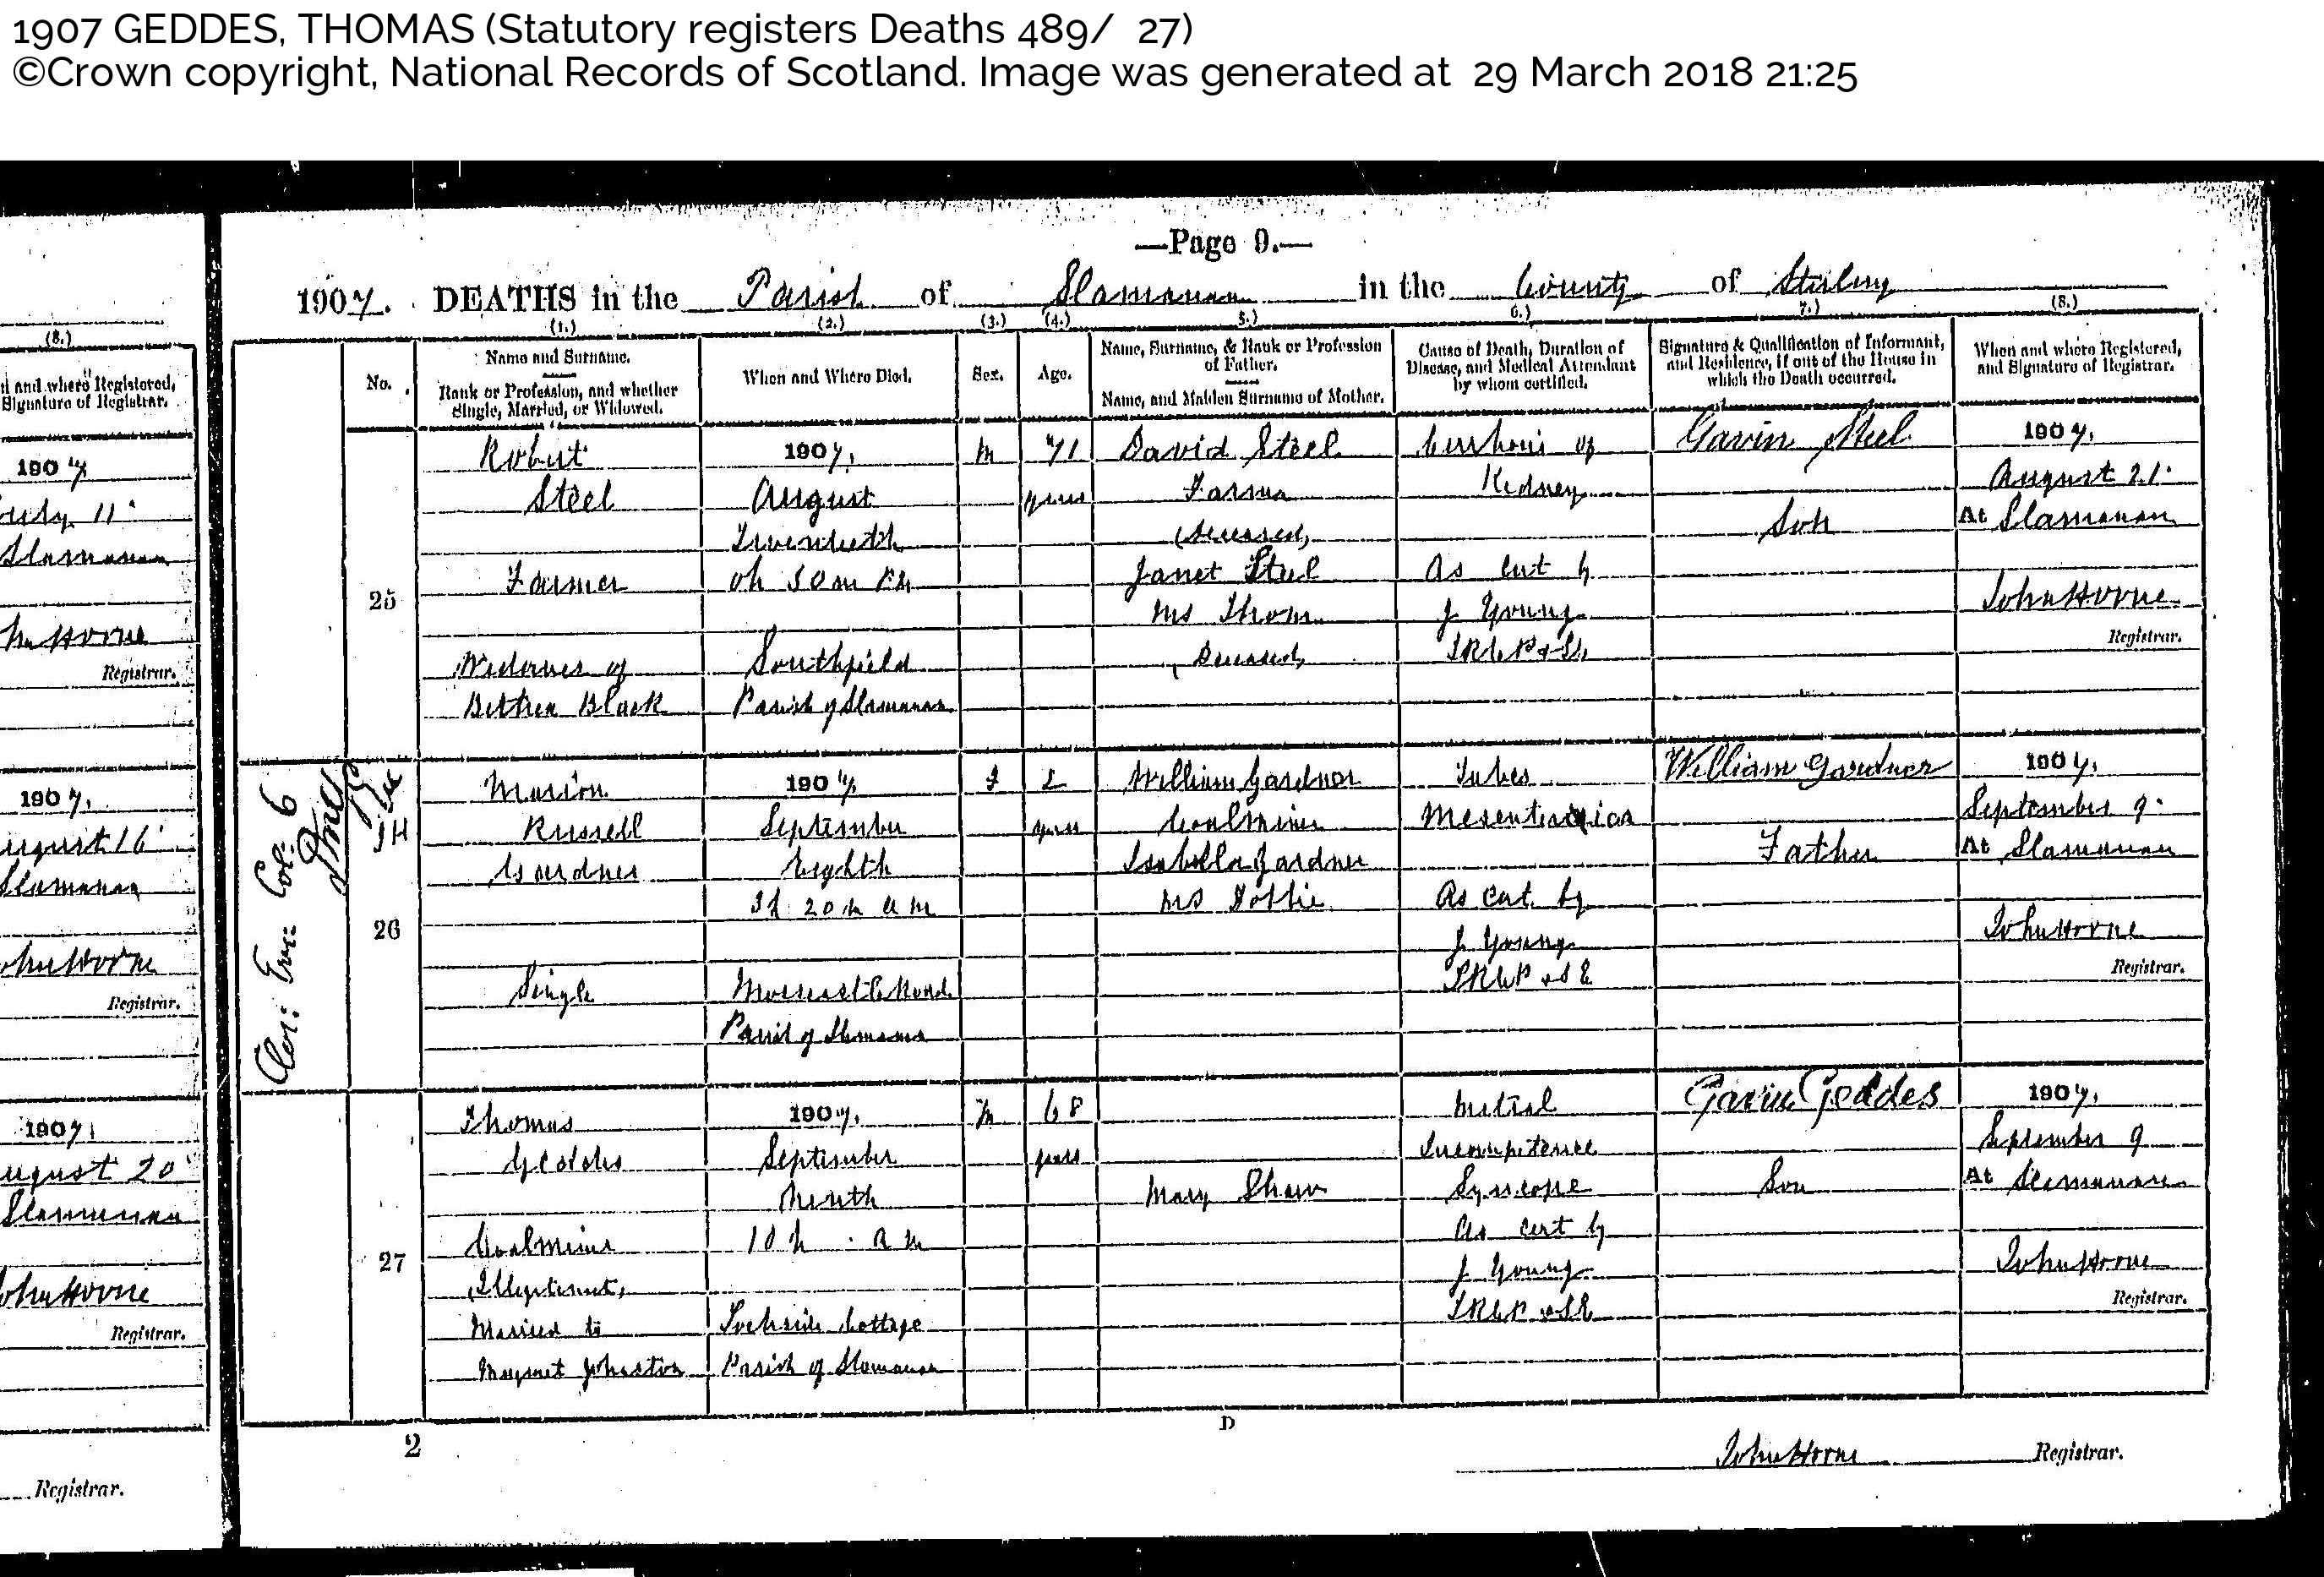 1907 GEDDES, THOMAS (Statutory registers Deaths 489/ 27)
©Crown copyright, National Records of Scotland. Image was generated at 29 March 2018 21:25
—Page 9.—
1907. DEATHS in the Parish of Slamannan in the County of Stirling
(8.)
(1.) (2.) (3.) (4.) 5.) 6.) 7.) (8.)
and where Registered,
Signature of Registrar.
1907
July 11
Slamannan
Horne
Registrar.
1907.
August 16
Slamannan
John Horne
Registrar.
1907.
August 20
Slamannan
John Horne
Registrar.
Registrar.
No.
Name and Surname.
Rank or Profession, and whether
Single, Married, or Widowed.
When and Where Died.
Sex.
Age.
Name, Surname, & Rank or Profession
of Father.
Name, and Maiden Surname of Mother.
Cause of Death, Duration of
Disease, and Medical Attendant
by whom certified.
Signature & Qualification of Informant,
and Residence, if out of the House in
which the Death occurred.
When and where Registered,
and Signature of Registrar.
25
Robert
Steel
Farmer
Widower of
Black
1907.
August
Twentieth
0h 50m
Southfield
Parish of Slamannan
M
71
years
David Steel
Farmer
(Deceased)
Janet Steel
Ms Thom
(Deceased)
Cirrhosis of
Kidney
As cert by
J Young
Gavin Steel
Son
1907.
August 21.
At Slamannan
John Horne
Registrar.
Col: 6
26
Marion
Russell
Gardner
Single
1907.
September
Eighth
3h 20m am
Parish of Slamannan
F
2
years
William Gardner
Coalminer
Isabella Gardner
ms
Tabes
Mesenterica
As cert by
J Young
William Gardner
Father
1907.
September 9.
At Slamannan
John Horne
Registrar.
27
Thomas
Geddes
Coalminer
(Illegitimate)
Married to
Margaret Johnston
1907.
September
Ninth
10h . am
Lochside Cottage
Parish of Slamannan
M
68
years
Mary Shaw
Mitral
Incompetence
Syncope
As cert by
J Young
Gavin Geddes
Son
1907.
September 9
At Slamannan
John Horne
Registrar.
2
D
John Horne Registrar.